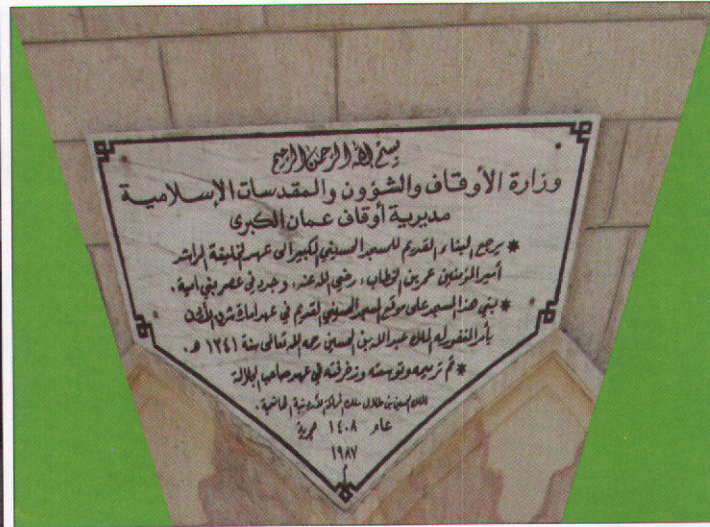 بسم الله الرحمن الرحيم
وزارة الأوقاف والشؤون والمقدسات الإسلامية
مديرية أوقاف عمان الكبرى
* يرجع البناء القديم للمسجد الحسيني الكبير الى عهد الخليفة الراشد
أمير المؤمنين عمر بن الخطاب، رضي الله عنه، وجدد في عصر بني امية.
* بني هذا المسجد على موقع المسجد الحسيني القديم في عهد امارة شرق الأردن
بأمر المغفور له الملك عبد الله بن الحسين رحمه الله تعالى سنة ١٣٤١ هـ.
* تم ترميمه وتوسعته وزخرفته في عهد صاحب الجلالة
الملك الحسين بن طلال ملك المملكة الأردنية الهاشمية.
عام ١٤٠٨ هجرية
١٩٨٧